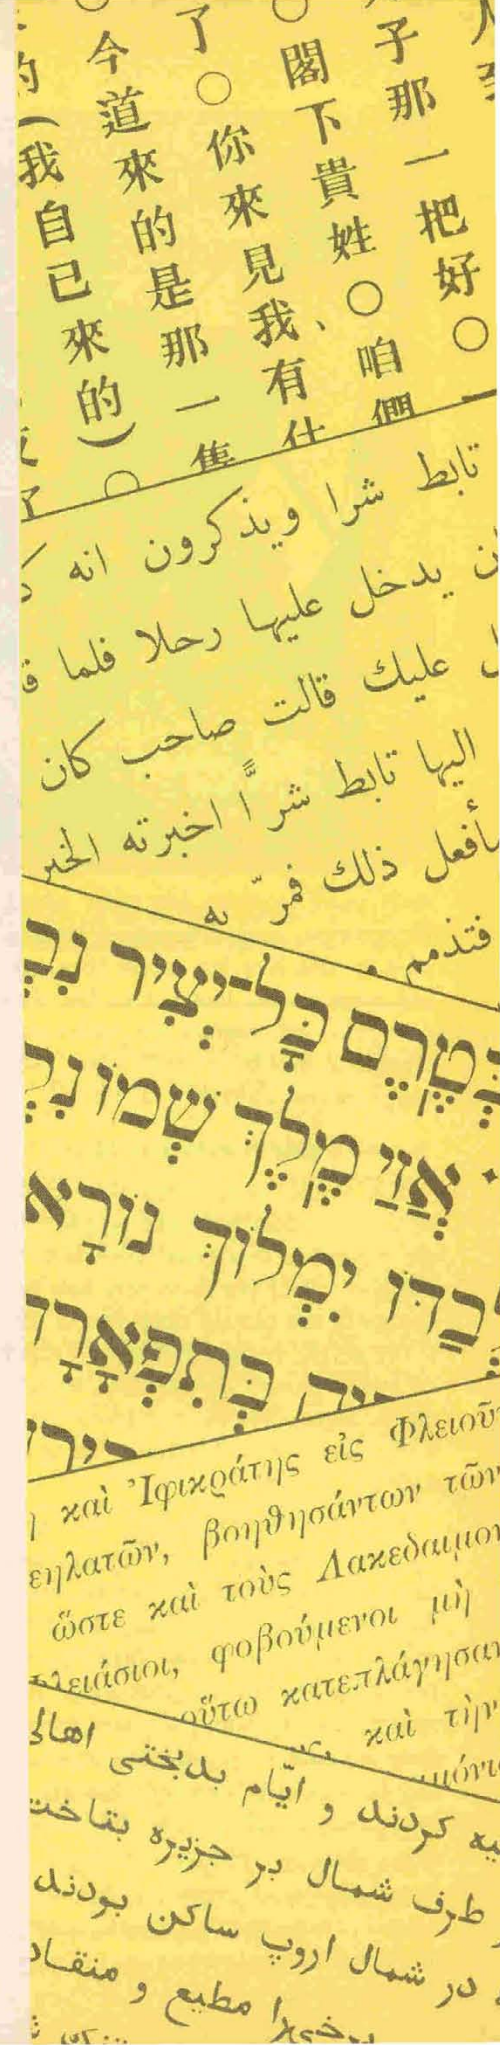 子那一把好○一
閣下貴姓○咱們
了○你來見我、有什
今道來的是那一隻
的(我自已來的)○
تابط شرا ويذكرون انه
يدخل عليها رحلا فلما
عليك قالت صاحب كان
اليها تابط شرًّا اخبرته الخبر
سأفعل ذلك فمرّ به
فتذمم
בְּטֶרֶם כָּל־יְצִיר נִבְ
אֲזַי מֶלֶךְ שְׁמוֹ נִק
לְבַדּוֹ יִמְלוֹךְ נוֹרָא
יִהְיֶה בְּתִפְאָרָה
καὶ Ἰφικράτης εἰς Φλειοῦ
εηλατῶν, βοηθησάντων τῶν
ὥστε καὶ τοὺς Λακεδαιμον
Φλειάσιοι, φοβούμενοι μὴ
οὕτω κατεπλάγησαν
καὶ τὴν
μόνι
كردند و ايّام بدبختى اهالى
طرف شمال بر جزيره بتاخت
در شمال اروپ ساكن بودند
را مطيع و منقاد